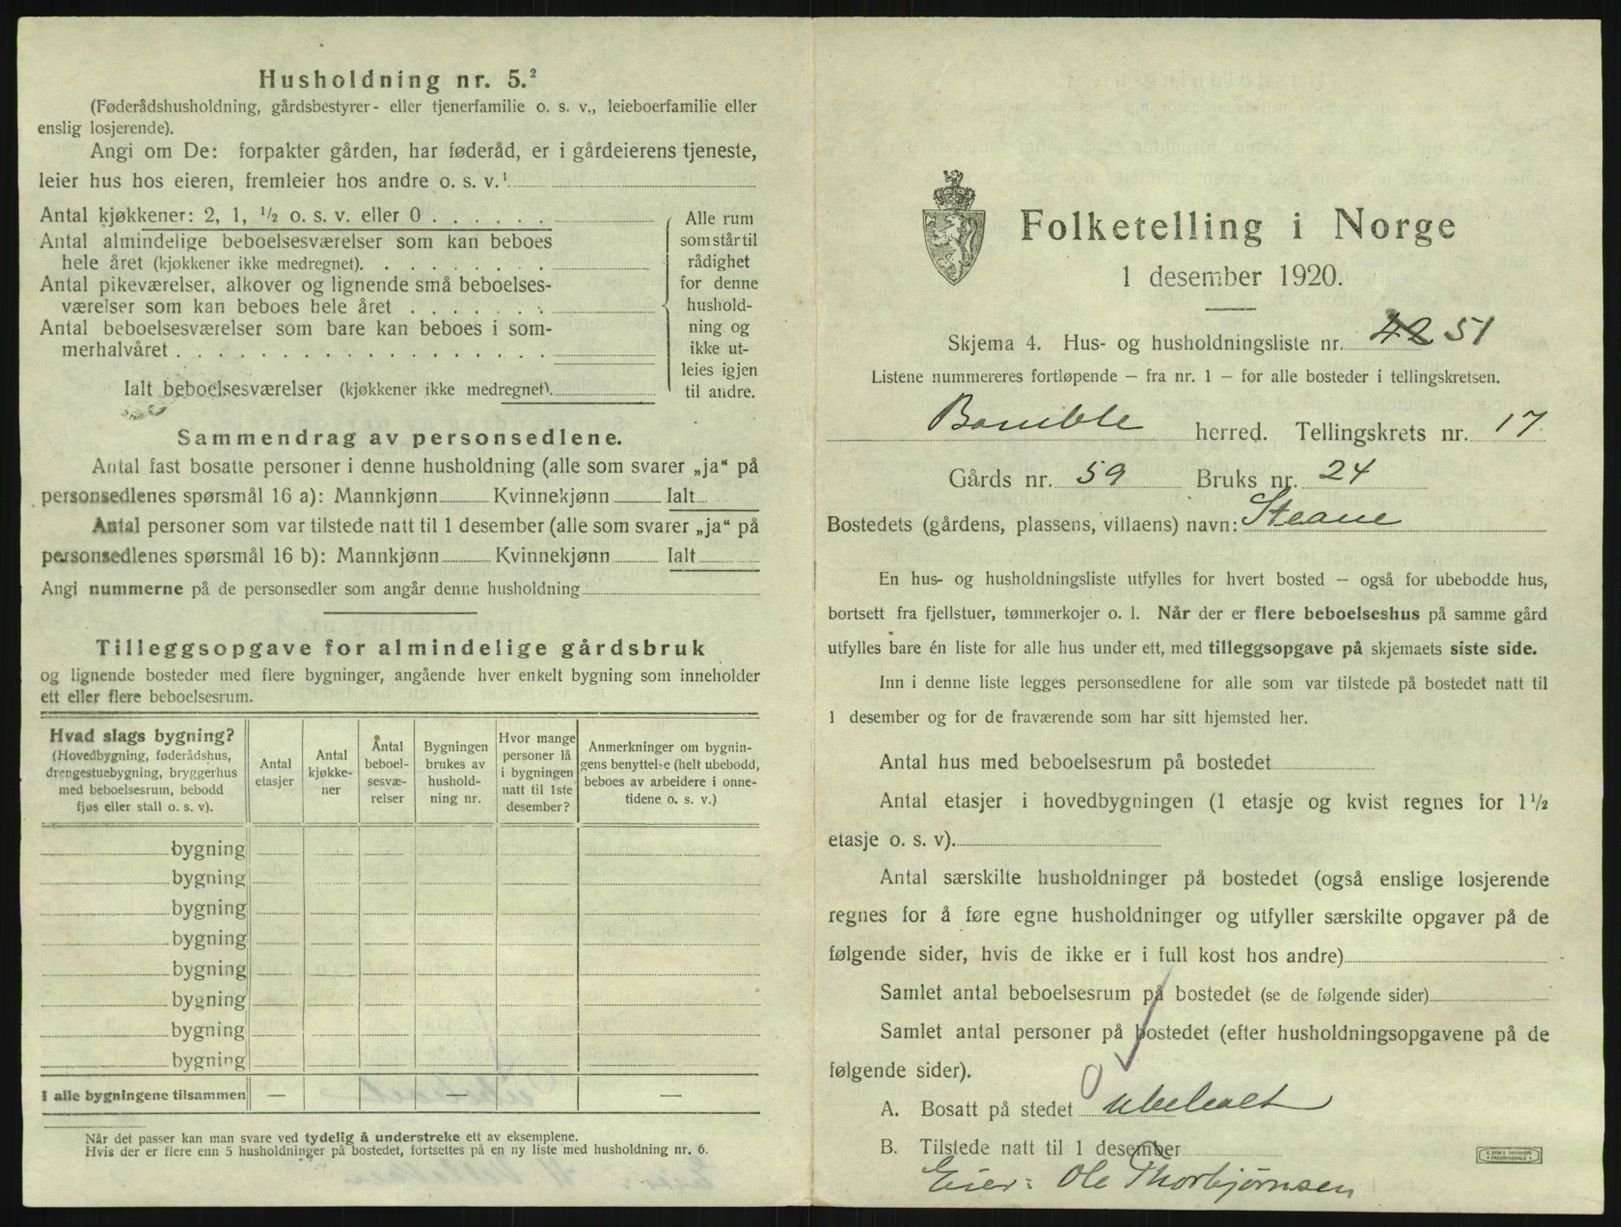 Husholdning nr. 5.²
(Føderådshusholdning, gårdsbestyrer- eller tjenerfamilie o. s. v., leieboerfamilie eller
enslig losjerende).
Angi om De: forpakter gården, har føderåd, er i gårdeierens tjeneste,
leier hus hos eieren, fremleier hos andre o. s. v.¹
Antal kjøkkener: 2, 1, ½ o. s. v. eller 0 . . . . . .
Antal almindelige beboelsesværelser som kan beboes
hele året (kjøkkener ikke medregnet). . . . . . . .
Antal pikeværelser, alkover og lignende små beboelses-
værelser som kan beboes hele året . . . . . . .
Antal beboelsesværelser som bare kan beboes i som-
merhalvåret . . . . . . . . . . . . . . . . .
Ialt beboelsesværelser (kjøkkener ikke medregnet).
Alle rum
som står til
rådighet
for denne
hushold-
ning og
ikke ut-
leies igjen
til andre.
Sammendrag av personsedlene.
Antal fast bosatte personer i denne husholdning (alle som svarer „ja“ på
personsedlenes spørsmål 16 a): Mannkjønn Kvinnekjønn Ialt
Antal personer som var tilstede natt til 1 desember (alle som svarer „ja“ på
personsedlenes spørsmål 16 b): Mannkjønn Kvinnekjønn Ialt
Angi nummerne på de personsedler som angår denne husholdning
Tilleggsopgave for almindelige gårdsbruk
og lignende bosteder med flere bygninger, angående hver enkelt bygning som inneholder
ett eller flere beboelsesrum.
Hvad slags bygning?
(Hovedbygning, føderådshus,
drengestuebygning, bryggerhus
med beboelsesrum, bebodd
fjøs eller stall o. s. v).
Antal
etasjer
Antal
kjøkke-
ner
Antal
beboel-
sesvæ-
relser
Bygningen
brukes av
hushold-
ning nr.
Hvor mange
personer lå
i bygningen
natt til 1ste
desember?
Anmerkninger om bygnin-
gens benyttelse (helt ubebodd,
beboes av arbeidere i onne-
tidene o. s. v.)
bygning
bygning
bygning
bygning
bygning
bygning
bygning
bygning
I alle bygningene tilsammen — — —
Når det passer kan man svare ved tydelig å understreke ett av eksemplene.
Hvis der er flere enn 5 husholdninger på bostedet, fortsettes på en ny liste med husholdning nr. 6.
Folketelling i Norge
1 desember 1920.
Skjema 4. Hus- og husholdningsliste nr. 42 51
Listene nummereres fortløpende — fra nr. 1 — for alle bosteder i tellingskretsen.
Bamble herred. Tellingskrets nr. 17.
Gårds nr. 59 Bruks nr. 24
Bostedets (gårdens, plassens, villaens) navn: Steane
En hus- og husholdningsliste utfylles for hvert bosted — også for ubebodde hus,
bortsett fra fjellstuer, tømmerkojer o. l. Når der er flere beboelseshus på samme gård
utfylles bare én liste for alle hus under ett, med tilleggsopgave på skjemaets siste side.
Inn i denne liste legges personsedlene for alle som var tilstede på bostedet natt til
1 desember og for de fraværende som har sitt hjemsted her.
Antal hus med beboelsesrum på bostedet
Antal etasjer i hovedbygningen (1 etasje og kvist regnes for 1½
etasje o. s. v).
Antal særskilte husholdninger på bostedet (også enslige losjerende
regnes for å føre egne husholdninger og utfyller særskilte opgaver på de
følgende sider, hvis de ikke er i full kost hos andre)
Samlet antal beboelsesrum på bostedet (se de følgende sider)
Samlet antal personer på bostedet (efter husholdningsopgavene på de
følgende sider).
A. Bosatt på stedet 0 ubeboet
B. Tilstede natt til 1 desember
Eier: Ole Thorbjørnsen